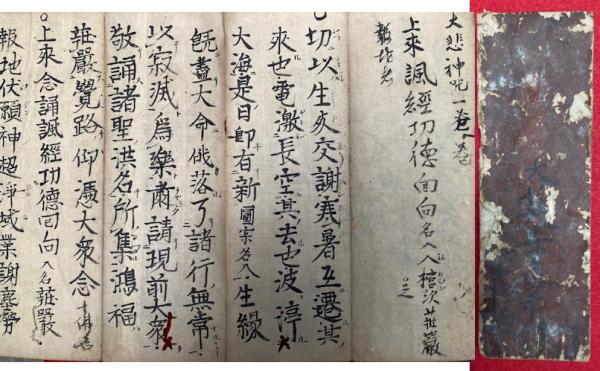 大悲神呪一卷
上來諷經功德回向名入
莊嚴
報地
○切以生死交謝寒暑互遷其
來也電激長空其去也波渟
大海是日即有新圓寂名入生縁
既盡大命俄落了諸行無常
以寂滅爲樂肅請現前大衆
敬誦諸聖洪名所集鴻福
莊嚴覺路仰憑大衆念
○上來念誦諷經功德回向入名莊嚴
報地伏願神超淨域業謝塵勞